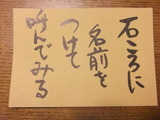 石ころに
名前を
つけて
呼んでみる